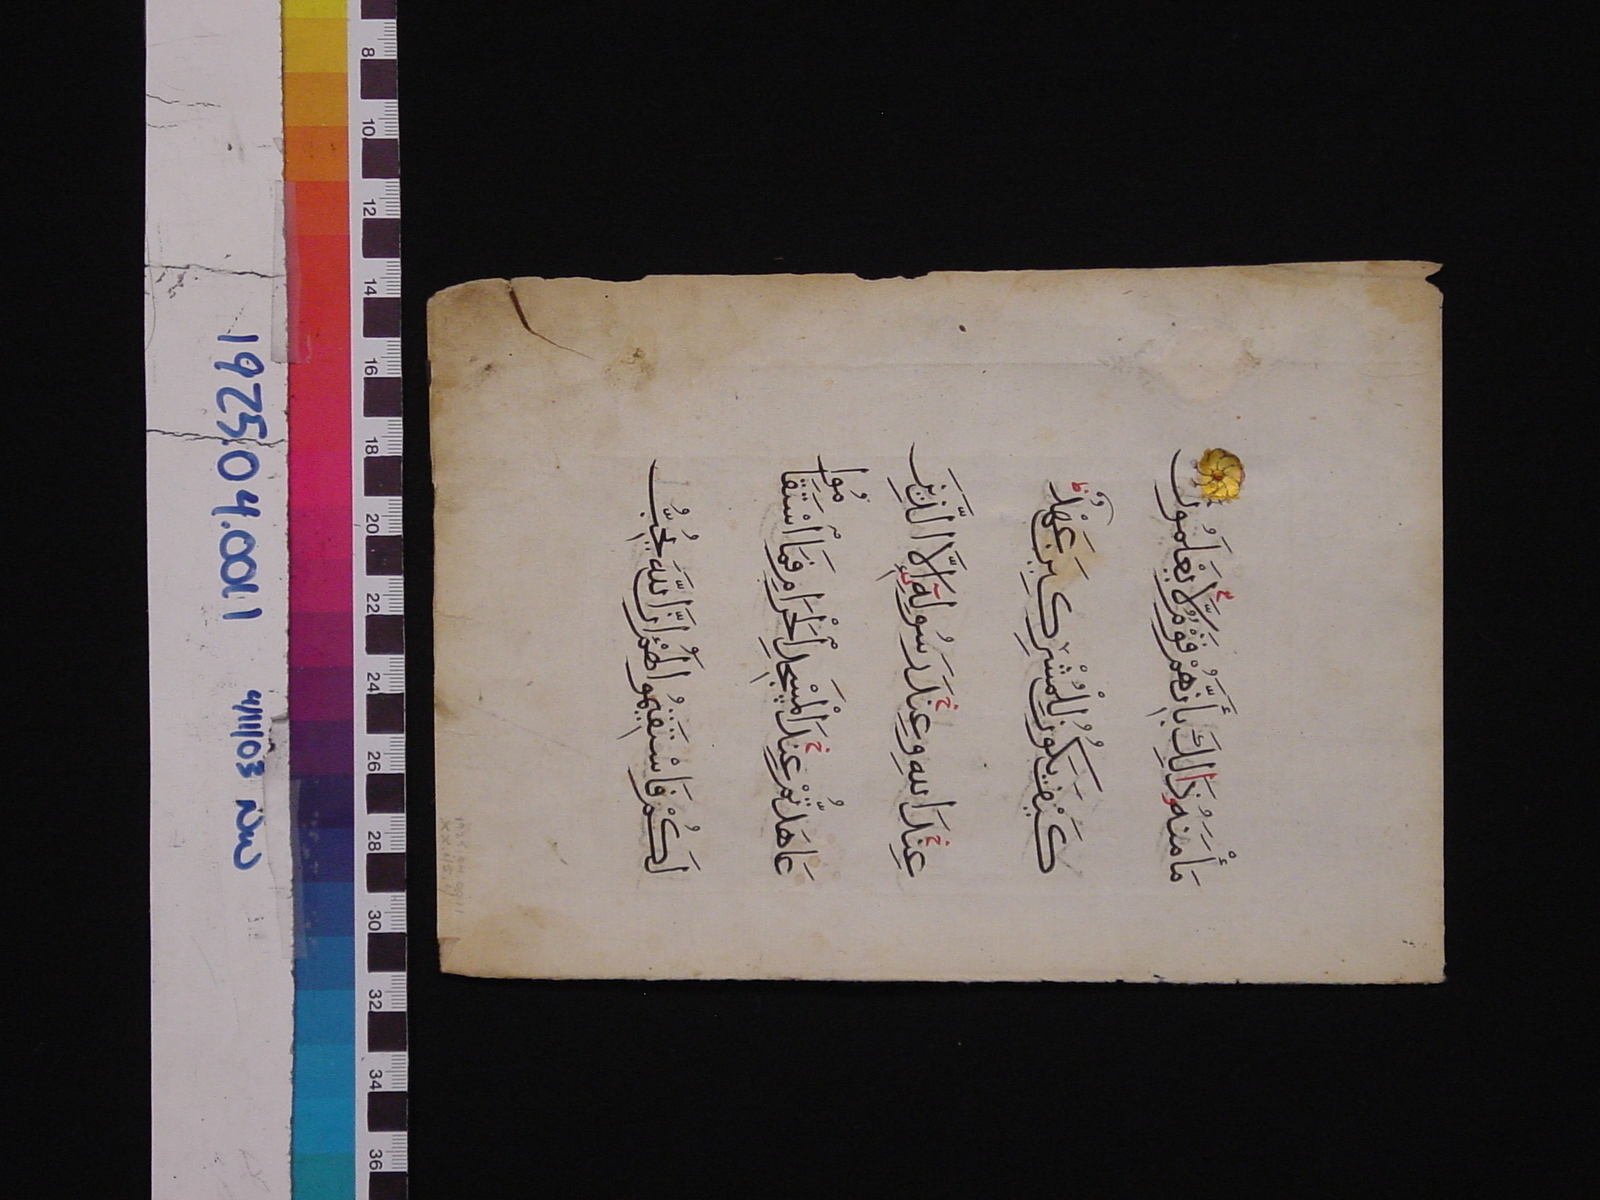 مَأْمَنَهُ ذَالِكَ بِأَنَّهُمْ قَوْمٌ لَّا يَعْلَمُونَ
كَيْفَ يَكُونُ لِلْمُشْرِكِينَ عَهْدٌ
عِنْدَ اللهِ وَعِنْدَ رَسُولِهِ إِلَّا الَّذِينَ
عَاهَدتُّمْ عِنْدَ الْمَسْجِدِ الْحَرَامِ فَمَا اسْتَقَامُوا
لَكُمْ فَاسْتَقِيمُوا لَهُمْ إِنَّ اللَّهَ يُحِبُّ
1925.004.0011
4/11/03
8
10
12
14
16
18
20
22
24
26
28
30
32
34
36